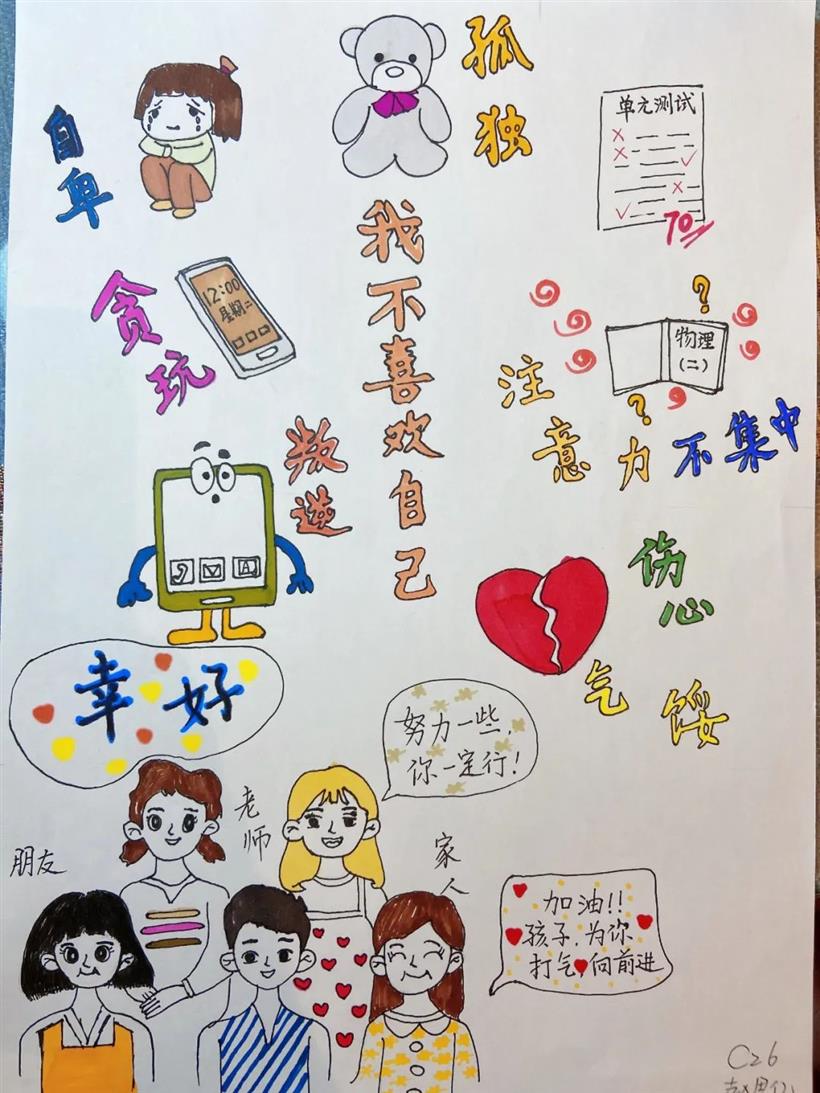 自卑
孤独
单元测试
70
我不喜欢自己
贪玩
12:00
星期二
物理
(二)
?
?
注意力不集中
叛逆
A
伤心
气馁
幸好
努力一些,
你一定行!
老师
朋友
家人
加油!!
孩子,为你
打气,向前进
C26